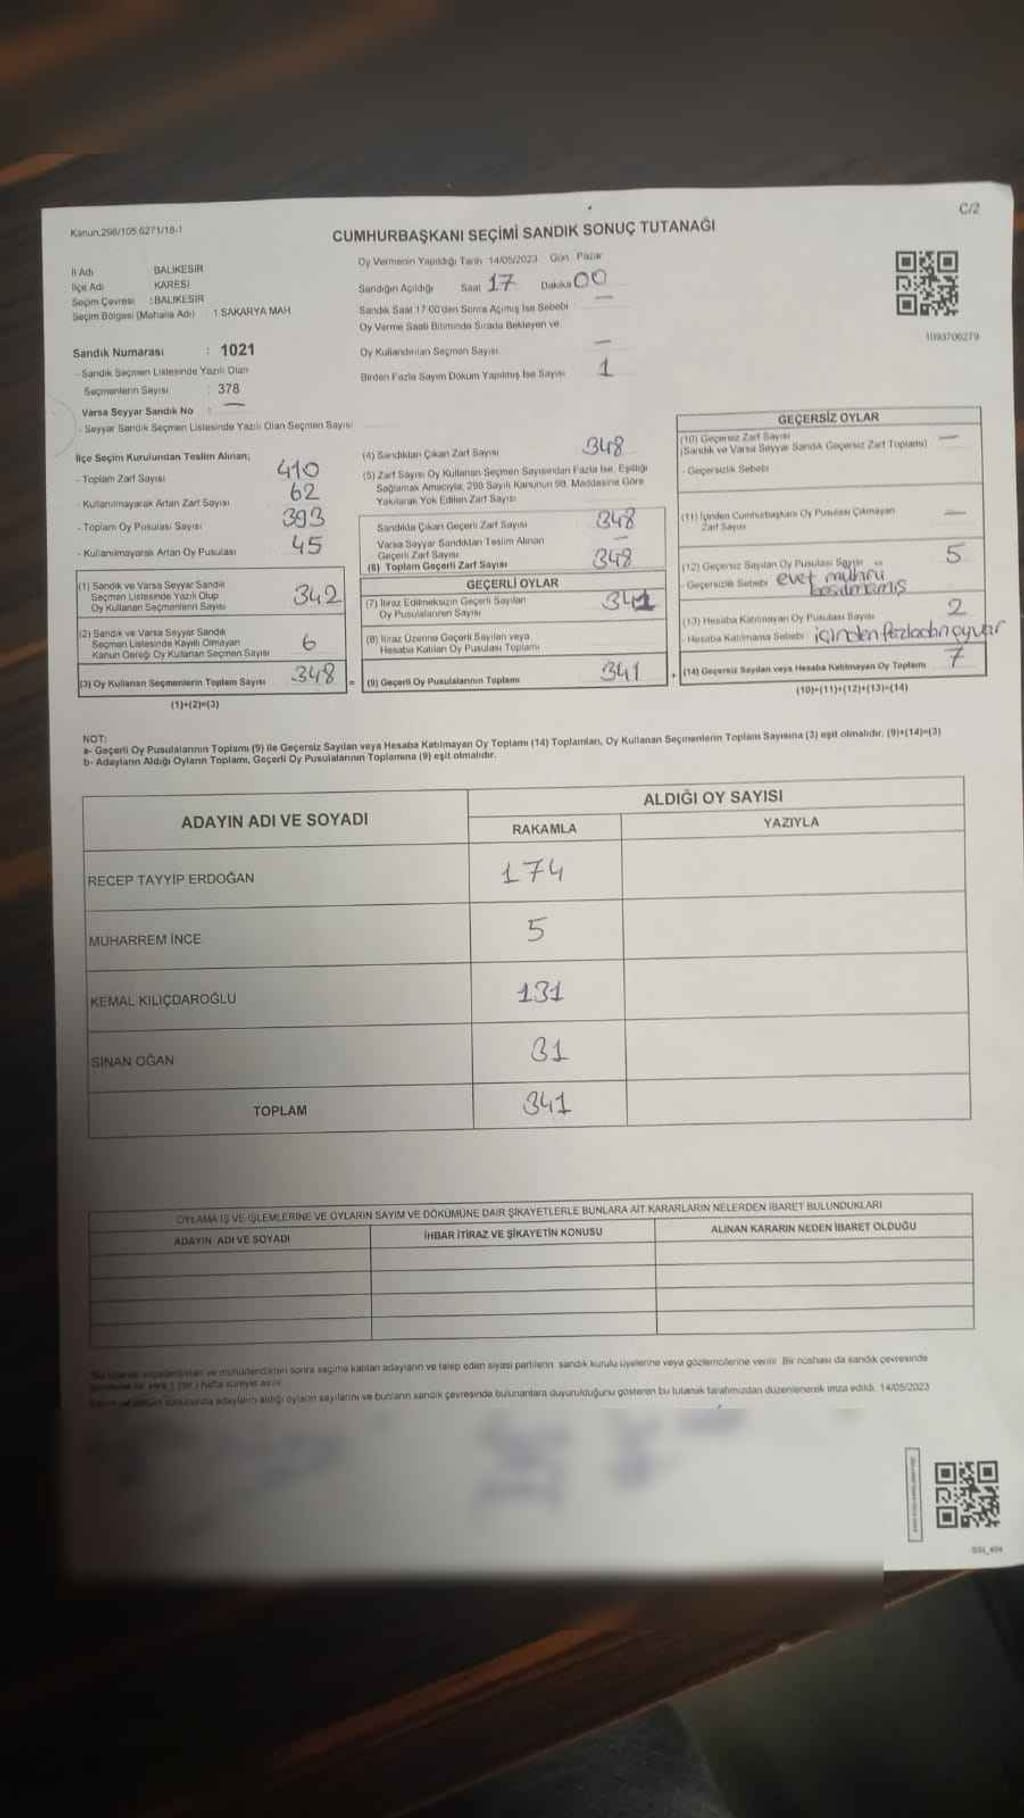 Kanun,298/105,6271/18-1
C/2
CUMHURBAŞKANI SEÇİMİ SANDIK SONUÇ TUTANAĞI
İl Adı BALIKESİR
İlçe Adı KARESİ
Seçim Çevresi : BALIKESİR
Seçim Bölgesi (Mahalle Adı) 1 SAKARYA MAH.
Sandık Numarası : 1021
- Sandık Seçmen Listesinde Yazılı Olan
Seçmenlerin Sayısı : 378
Varsa Seyyar Sandık No : —
- Seyyar Sandık Seçmen Listesinde Yazılı Olan Seçmen Sayısı
Oy Vermenin Yapıldığı Tarih 14/05/2023 Gün Pazar
Sandığın Açıldığı Saat 17 Dakika 00
Sandık Saat 17:00'den Sonra Açılmış İse Sebebi —
Oy Verme Saati Bitiminde Sırada Bekleyen ve
Oy Kullandırılan Seçmen Sayısı —
Birden Fazla Sayım Döküm Yapılmış İse Sayısı 1
1093706279
İlçe Seçim Kurulundan Teslim Alınan;
- Toplam Zarf Sayısı 410
- Kullanılmayarak Artan Zarf Sayısı 62
- Toplam Oy Pusulası Sayısı 393
- Kullanılmayarak Artan Oy Pusulası 45
(1) Sandık ve Varsa Seyyar Sandık
Seçmen Listesinde Yazılı Olup
Oy Kullanan Seçmenlerin Sayısı 342
(2) Sandık ve Varsa Seyyar Sandık
Seçmen Listesinde Kayıtlı Olmayan
Kanun Gereği Oy Kullanan Seçmen Sayısı 6
(3) Oy Kullanan Seçmenlerin Toplam Sayısı 348
(1)+(2)=(3)
(4) Sandıktan Çıkan Zarf Sayısı 348
(5) Zarf Sayısı Oy Kullanan Seçmen Sayısından Fazla İse, Eşitliği
Sağlamak Amacıyla, 298 Sayılı Kanunun 98. Maddesine Göre
Yakılarak Yok Edilen Zarf Sayısı
Sandıkta Çıkan Geçerli Zarf Sayısı 348
Varsa Seyyar Sandıktan Teslim Alınan
Geçerli Zarf Sayısı —
(6) Toplam Geçerli Zarf Sayısı 348
GEÇERLİ OYLAR
(7) İtiraz Edilmeksizin Geçerli Sayılan
Oy Pusulalarının Sayısı 341
(8) İtiraz Üzerine Geçerli Sayılan veya
Hesaba Katılan Oy Pusulası Toplamı
= (9) Geçerli Oy Pusulalarının Toplamı 341
GEÇERSİZ OYLAR
(10) Geçersiz Zarf Sayısı —
(Sandık ve Varsa Seyyar Sandık Geçersiz Zarf Toplamı)
- Geçersizlik Sebebi
(11) İçinden Cumhurbaşkanı Oy Pusulası Çıkmayan
Zarf Sayısı —
(12) Geçersiz Sayılan Oy Pusulası Sayısı 5
- Geçersizlik Sebebi evet mührü
basılmamış
(13) Hesaba Katılmayan Oy Pusulası Sayısı 2
- Hesaba Katılmama Sebebi içinden fazladan oy var
+ (14) Geçersiz Sayılan veya Hesaba Katılmayan Oy Toplamı 7
(10)+(11)+(12)+(13)=(14)
NOT:
a- Geçerli Oy Pusulalarının Toplamı (9) ile Geçersiz Sayılan veya Hesaba Katılmayan Oy Toplamı (14) Toplamları, Oy Kullanan Seçmenlerin Toplam Sayısına (3) eşit olmalıdır. (9)+(14)=(3)
b- Adayların Aldığı Oyların Toplamı, Geçerli Oy Pusulalarının Toplamına (9) eşit olmalıdır.
ADAYIN ADI VE SOYADI
ALDIĞI OY SAYISI
RAKAMLA YAZIYLA
RECEP TAYYİP ERDOĞAN 174
MUHARREM İNCE 5
KEMAL KILIÇDAROĞLU 131
SİNAN OĞAN 31
TOPLAM 341
OYLAMA İŞ VE İŞLEMLERİNE VE OYLARIN SAYIM VE DÖKÜMÜNE DAİR ŞİKAYETLERLE BUNLARA AİT KARARLARIN NELERDEN İBARET BULUNDUKLARI
ADAYIN ADI VE SOYADI İHBAR İTİRAZ VE ŞİKAYETİN KONUSU ALINAN KARARIN NEDEN İBARET OLDUĞU
sonra seçime katılan adayların ve talep eden siyasi partilerin sandık kurulu üyelerine veya gözlemcilerine verilir. Bir nüshası da sandık çevresinde
adayların aldığı oyların sayılarını ve bunların sandık çevresinde bulunanlara duyurulduğunu gösteren bu tutanak tarafımızdan düzenlenerek imza edildi. 14/05/2023